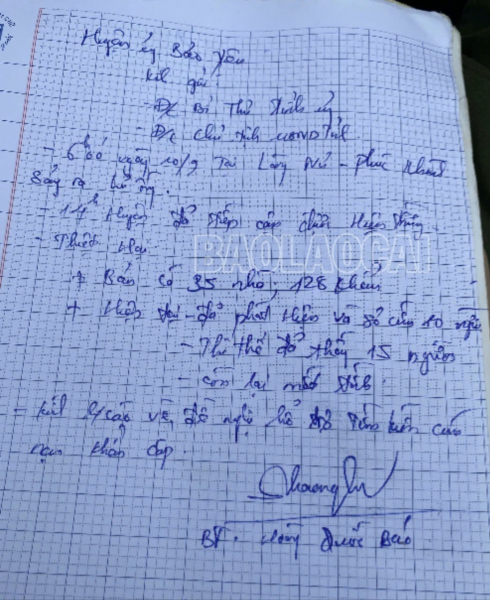 Huyện ủy Bảo Yên
Kính gửi:
- Đ/c Bí Thư Tỉnh ủy
- Đ/c Chủ tịch UBND Tỉnh
- 6h00 ngày 10/9 Tại Làng Nủ - Phúc Khánh
Sảy ra lũ ống.
- 14h Huyện đã tiếp cận được Hiện trường
- Thiệt Hại
BAOLAOCAI
+ Bản có 35 nhà, 128 khẩu
+ Hiện tại - đã phát Hiện và sơ cứu 10 người
- Thi thể đã thấy 15 người
- còn lại mất tích.
- Kính b/cáo và đề nghị hỗ trợ tìm kiếm cứu
nạn khẩn cấp.
BT. Hoàng Quốc Bảo